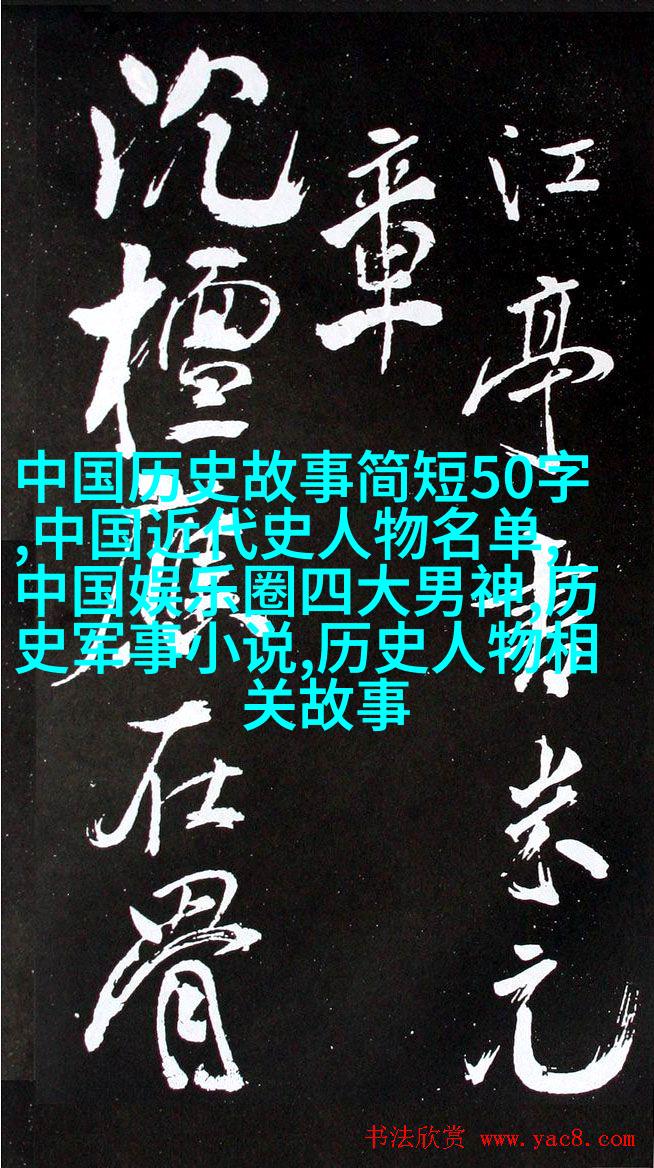 江亭書米元
章
沉檀在骨
中国历史故事简短50字
,中国近代史人物名单,
中国娱乐圈四大男神,历
史军事小说,历史人物相
关故事
书法欣赏 www.yac8.com